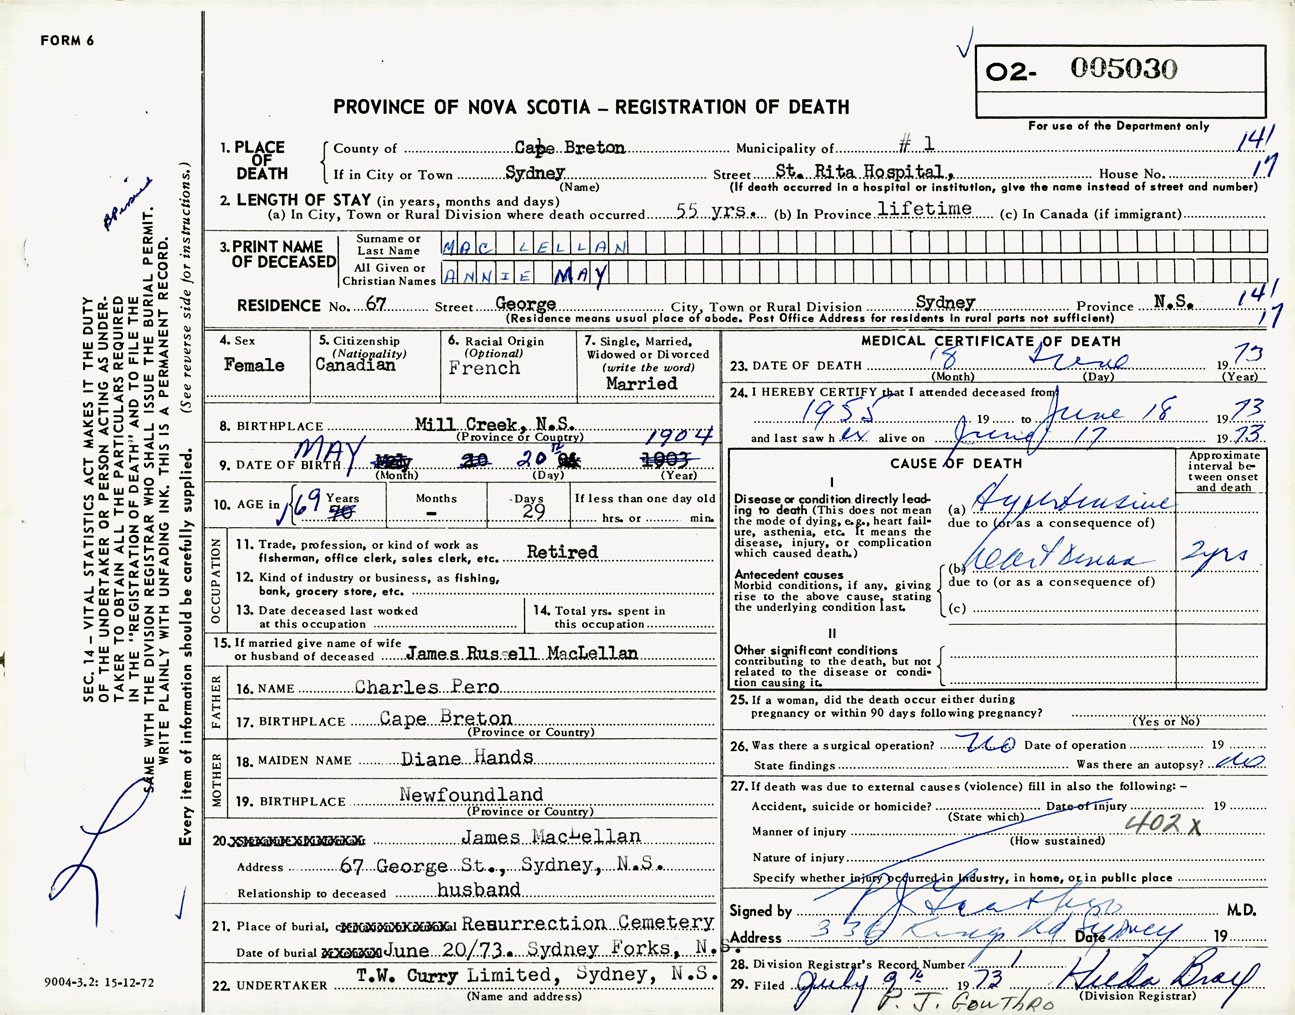 FORM 6
O2- 005030
PROVINCE OF NOVA SCOTIA – REGISTRATION OF DEATH
For use of the Department only
1. PLACE OF DEATH
County of Cape Breton Municipality of # 1 141
If in City or Town Sydney Street St. Rita Hospital, House No. 17
(Name) (If death occurred in a hospital or institution, give the name instead of street and number)
2. LENGTH OF STAY (in years, months and days)
(a) In City, Town or Rural Division where death occurred 55 yrs. (b) In Province lifetime (c) In Canada (if immigrant)
3. PRINT NAME OF DECEASED
Surname or Last Name MAC LELLAN
All Given or Christian Names ANNIE MAY
RESIDENCE No. 67 Street George City, Town or Rural Division Sydney Province N.S. 141
(Residence means usual place of abode. Post Office Address for residents in rural parts not sufficient) 17
4. Sex
Female
5. Citizenship
(Nationality)
Canadian
6. Racial Origin
(Optional)
French
7. Single, Married,
Widowed or Divorced
(write the word)
Married
8. BIRTHPLACE Mill Creek, N.S.
(Province or Country)
9. DATE OF BIRTH MAY 20th 1904
May 20 1903
(Month) (Day) (Year)
10. AGE in 69 Years 70
Months -
Days 29
If less than one day old
hrs. or min.
OCCUPATION
11. Trade, profession, or kind of work as
fisherman, office clerk, sales clerk, etc. Retired
12. Kind of industry or business, as fishing,
bank, grocery store, etc.
13. Date deceased last worked
at this occupation
14. Total yrs. spent in
this occupation
15. If married give name of wife
or husband of deceased James Russell MacLellan
FATHER
16. NAME Charles Pero
17. BIRTHPLACE Cape Breton
(Province or Country)
MOTHER
18. MAIDEN NAME Diane Hands
19. BIRTHPLACE Newfoundland
(Province or Country)
20. James MacLellan
Address 67 George St., Sydney, N.S.
Relationship to deceased husband
21. Place of burial, Resurrection Cemetery
Date of burial June 20/73. Sydney Forks, N.S.
22. UNDERTAKER T.W. Curry Limited, Sydney, N.S.
(Name and address)
MEDICAL CERTIFICATE OF DEATH
23. DATE OF DEATH 18 June 1973
(Month) (Day) (Year)
24. I HEREBY CERTIFY that I attended deceased from
1955 19 to June 18 1973
and last saw her alive on June 17 1973
CAUSE OF DEATH
Approximate interval between onset and death
I
Disease or condition directly lead-
ing to death (This does not mean
the mode of dying, e.g., heart fail-
ure, asthenia, etc. It means the
disease, injury, or complication
which caused death.)
(a) Hypertensive
due to (or as a consequence of)
Antecedent causes
Morbid conditions, if any, giving
rise to the above cause, stating
the underlying condition last.
(b) Heart Disease 2yrs
due to (or as a consequence of)
(c)
II
Other significant conditions
contributing to the death, but not
related to the disease or condi-
tion causing it.
25. If a woman, did the death occur either during
pregnancy or within 90 days following pregnancy?
(Yes or No)
26. Was there a surgical operation? No Date of operation 19
State findings Was there an autopsy? no
27. If death was due to external causes (violence) fill in also the following: –
Accident, suicide or homicide? Date of injury 19
(State which) 402 X
Manner of injury
(How sustained)
Nature of injury
Specify whether injury occurred in Industry, in home, or in public place
Signed by M.D.
Address 336 Kings Rd Sydney Date 19
28. Division Registrar's Record Number
29. Filed July 9th 1973 Hilda Bray
(Division Registrar)
P. J. GOUTHRO
SEC. 14 – VITAL STATISTICS ACT MAKES IT THE DUTY
OF THE UNDERTAKER OR PERSON ACTING AS UNDER-
TAKER TO OBTAIN ALL THE PARTICULARS REQUIRED
IN THE "REGISTRATION OF DEATH" AND TO FILE THE
SAME WITH THE DIVISION REGISTRAR WHO SHALL ISSUE THE BURIAL PERMIT.
WRITE PLAINLY WITH UNFADING INK. THIS IS A PERMANENT RECORD.
Every item of information should be carefully supplied. (See reverse side for instructions.)
9004-3.2: 15-12-72